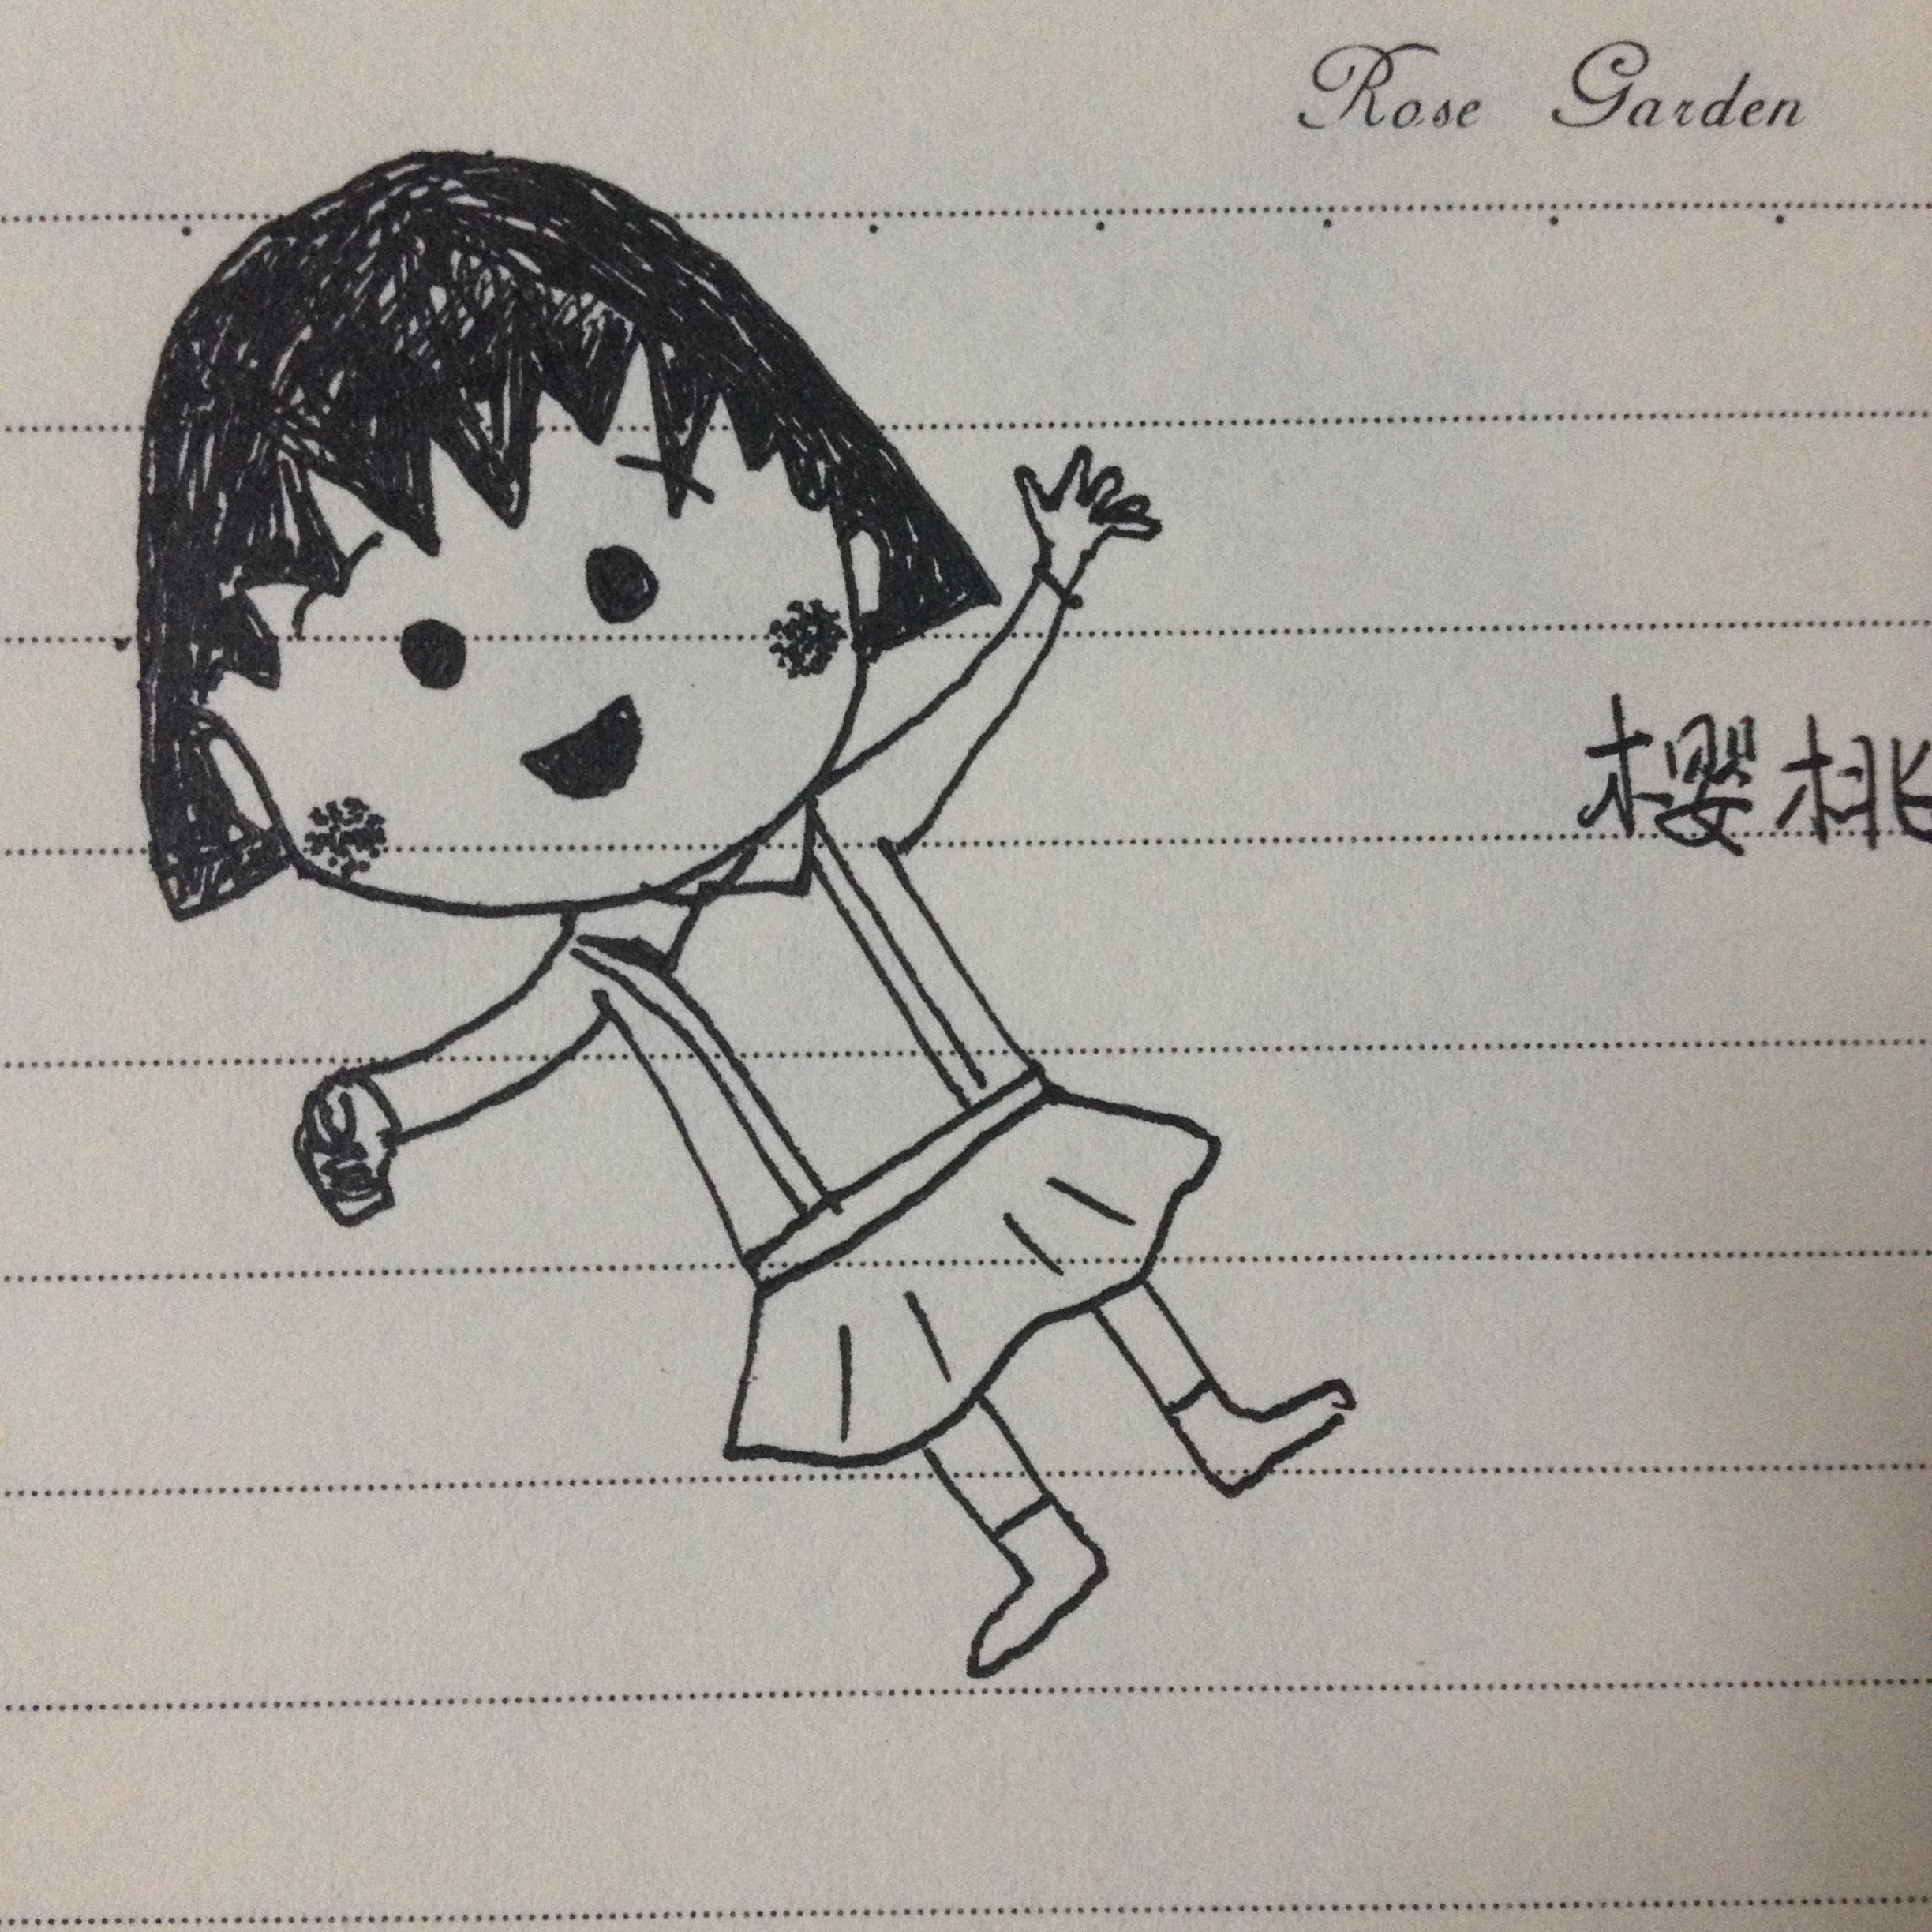 Rose Garden
樱桃